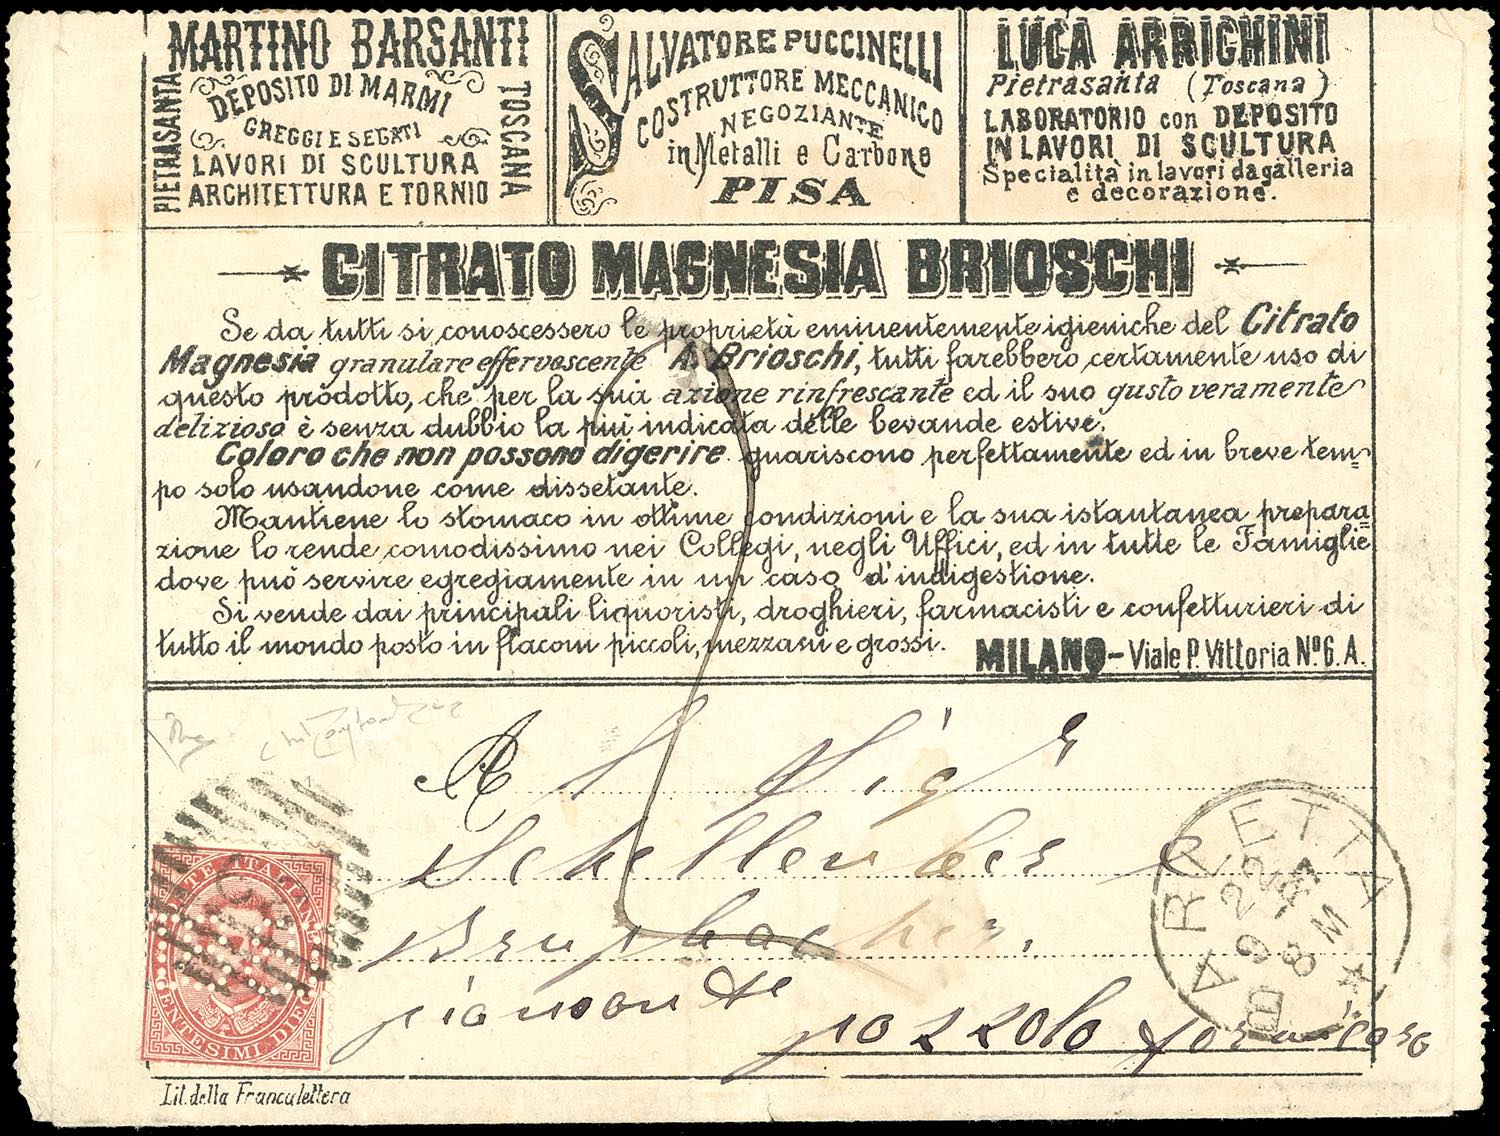 MARTINO BARSANTI
PIETRASANTA
DEPOSITO DI MARMI
GREGGI E SEGATI
LAVORI DI SCULTURA
ARCHITETTURA E TORNIO
TOSCANA
SALVATORE PUCCINELLI
COSTRUTTORE MECCANICO
NEGOZIANTE
in Metalli e Carbone
PISA
LUCA ARRIGHINI
Pietrasanta (Toscana)
LABORATORIO con DEPOSITO
IN LAVORI DI SCULTURA
Specialità in lavori da galleria
e decorazione.
CITRATO MAGNESIA BRIOSCHI
Se da tutti si conoscessero le proprietà eminentemente igieniche del Citrato
Magnesia granulare effervescente A. Brioschi, tutti farebbero certamente uso di
questo prodotto, che per la sua azione rinfrescante ed il suo gusto veramente
delizioso è senza dubbio la più indicata delle bevande estive.
Coloro che non possono digerire guariscono perfettamente ed in breve tem=
po solo usandone come dissetante.
Mantiene lo stomaco in ottime condizioni e la sua istantanea prepara=
zione lo rende comodissimo nei Collegi, negli Uffici, ed in tutte le Famiglie
dove può servire egregiamente in un caso d'indigestione.
Si vende dai principali liquoristi, droghieri, farmacisti e confetturieri di
tutto il mondo posto in flaconi piccoli, mezzani e grossi.
MILANO – Viale P. Vittoria Nº 6. A.
A l Sigr
Schellenber e
Brupbacher.
piemonte
pozzolo formicaro
POSTE ITALIANE
CENTESIMI DIECI
BARRETTA
22
9 87
8 M
Lit. della Francalettera